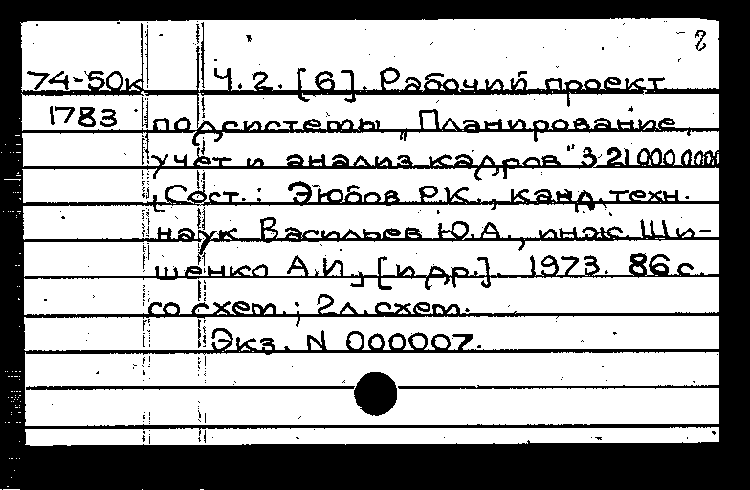 8
74-50к Ч. 2. [6]. Рабочий проект
1783 подсистемы „Планирование,
учет и анализ кадров" 3 21 000 0000
[Сост.: Эюбов Р.К., канд. техн.
наук Васильев Ю.А., инж. Ши-
шенко А.И., [и др.]. 1973. 86 с.
со схем.; 2 л. схем.
Экз. N 000007.